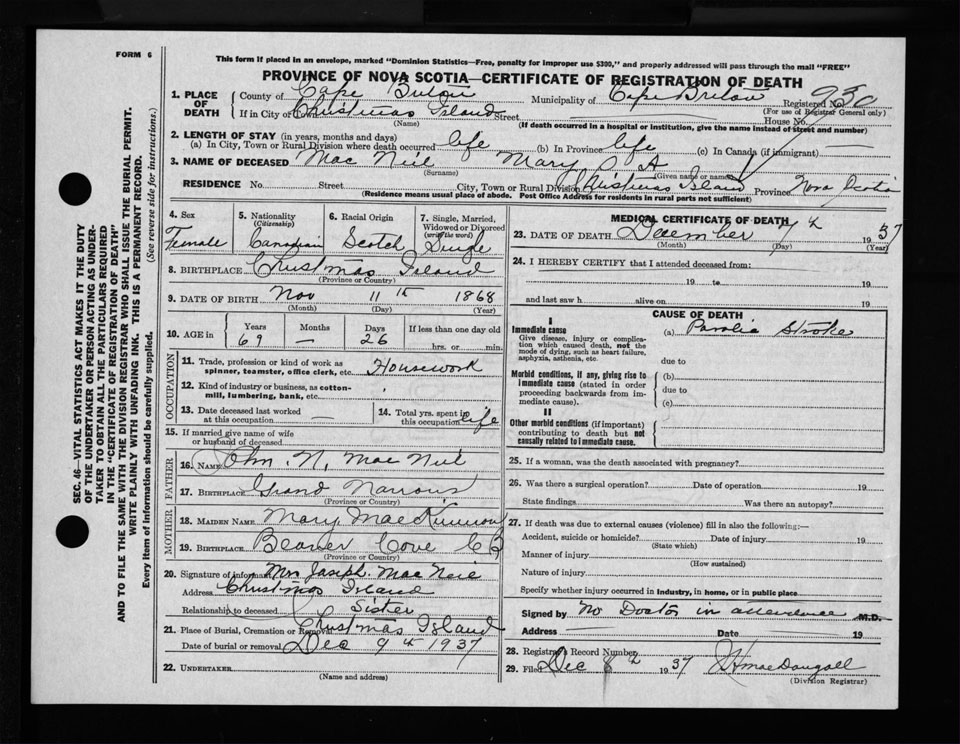 FORM 6
This form if placed in an envelope, marked "Dominion Statistics—Free, penalty for improper use $300," and properly addressed will pass through the mail "FREE"
PROVINCE OF NOVA SCOTIA—CERTIFICATE OF REGISTRATION OF DEATH
1. PLACE OF DEATH
County of Cape Breton Municipality of Cape Breton Registered No. 930
(For use of Registrar General only)
If in City or Town Christmas Island Street House No.
(Name) (If death occurred in a hospital or institution, give the name instead of street and number)
2. LENGTH OF STAY (in years, months and days)
(a) In City, Town or Rural Division where death occurred life (b) In Province life (c) In Canada (if immigrant) —
3. NAME OF DECEASED Mac Neil Mary A
(Surname) (Given name or names)
RESIDENCE No. Street City, Town or Rural Division Christmas Island Province Nova Scotia
(Residence means usual place of abode. Post Office Address for residents in rural parts not sufficient)
4. Sex
Female
5. Nationality
(Citizenship)
Canadian
6. Racial Origin
Scotch
7. Single, Married, Widowed or Divorced
(write the word)
Single
8. BIRTHPLACE Christmas Island
(Province or Country)
9. DATE OF BIRTH Nov 11th 1868
(Month) (Day) (Year)
10. AGE in
Years Months Days If less than one day old
69 — 26 hrs. or min.
OCCUPATION
11. Trade, profession or kind of work as spinner, teamster, office clerk, etc. Housework
12. Kind of industry or business, as cotton-mill, lumbering, bank, etc.
13. Date deceased last worked at this occupation —
14. Total yrs. spent in this occupation life
15. If married give name of wife or husband of deceased
FATHER
16. NAME John N. Mac Neil
17. BIRTHPLACE Grand Narrows
(Province or Country)
MOTHER
18. MAIDEN NAME Mary MacKinnon
19. BIRTHPLACE Beaver Cove CB
(Province or Country)
20. Signature of informant Mrs Joseph. Mac Neil
Address Christmas Island
Relationship to deceased Sister
21. Place of Burial, Cremation or Removal Christmas Island
Date of burial or removal Dec 9th 1937
22. UNDERTAKER
(Name and address)
MEDICAL CERTIFICATE OF DEATH
23. DATE OF DEATH December 7th 1937
(Month) (Day) (Year)
24. I HEREBY CERTIFY that I attended deceased from:
19 to 19
and last saw h alive on 19
CAUSE OF DEATH
I
Immediate cause
Give disease, injury or complication which caused death, not the mode of dying, such as heart failure, asphyxia, asthenia, etc.
(a) Paralic Stroke
due to
Morbid conditions, if any, giving rise to immediate cause (stated in order proceeding backwards from immediate cause).
(b)
due to
(c)
II
Other morbid conditions (if important) contributing to death but not causally related to immediate cause.
25. If a woman, was the death associated with pregnancy?
26. Was there a surgical operation? Date of operation 19
State findings Was there an autopsy?
27. If death was due to external causes (violence) fill in also the following:—
Accident, suicide or homicide? Date of injury 19
(State which)
Manner of injury
(How sustained)
Nature of injury
Specify whether injury occurred in industry, in home, or in public place
Signed by No Doctor in attendence M.D.
Address Date 19
28. Registrar's Record Number
29. Filed Dec 8 1937 MacDougall
(Division Registrar)
SEC. 46—VITAL STATISTICS ACT MAKES IT THE DUTY
OF THE UNDERTAKER OR PERSON ACTING AS UNDER-
TAKER TO OBTAIN ALL THE PARTICULARS REQUIRED
IN THE "CERTIFICATE OF REGISTRATION OF DEATH"
AND TO FILE THE SAME WITH THE DIVISION REGISTRAR WHO SHALL ISSUE THE BURIAL PERMIT.
WRITE PLAINLY WITH UNFADING INK. THIS IS A PERMANENT RECORD.
Every item of information should be carefully supplied. (See reverse side for instructions.)